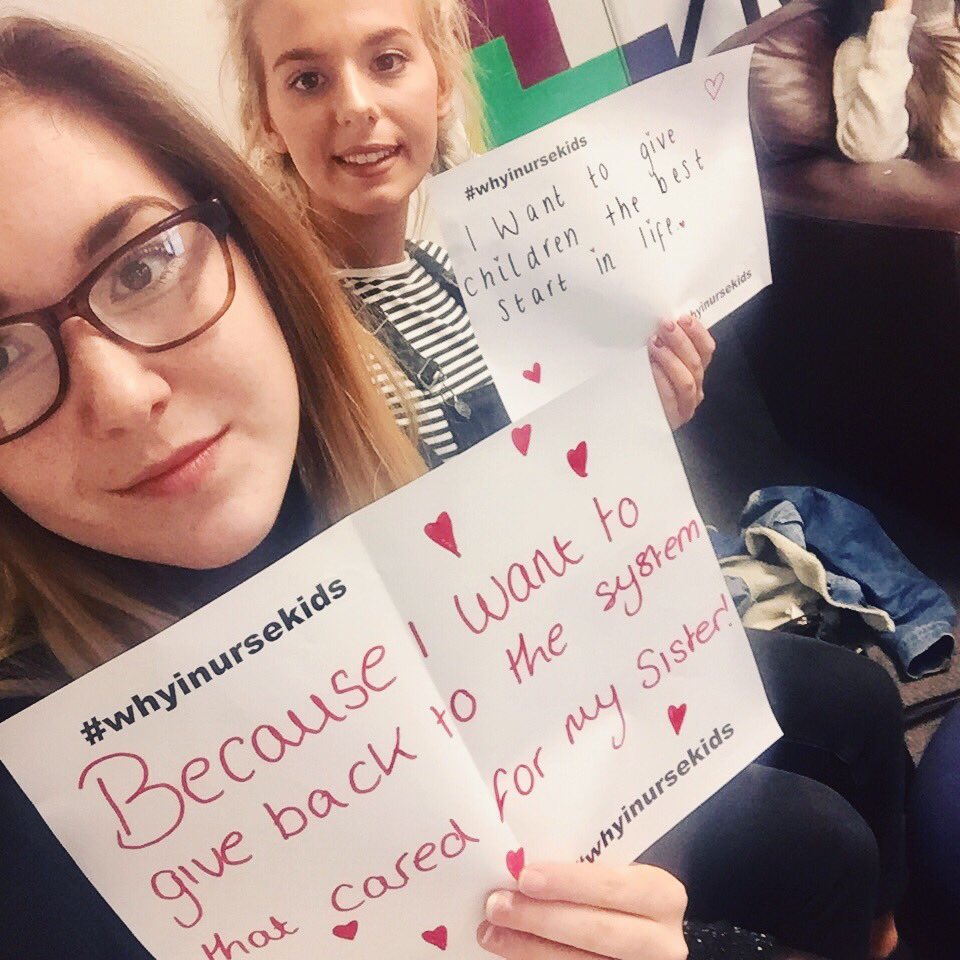 #whyinursekids
I Want to give
Children the best
Start in life.
#whyinursekids
Because I want to
give back to the system
that cared for my Sister!
#whyinursekids